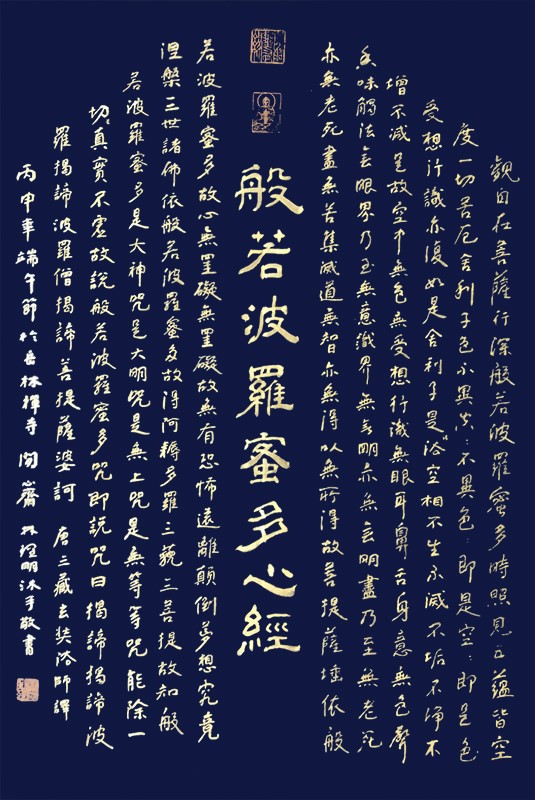 觀自在菩薩行深般若波羅蜜多時照見五蘊皆空
度一切苦厄舍利子色不異空〻不異色〻即是空〻即是色
受想行識亦復如是舍利子是諸空相不生不滅不垢不淨不
增不減是故空中無色無受想行識無眼耳鼻舌身意無色聲
香味觸法無眼界乃至無意識界無無明亦無無明盡乃至無老死
亦無老死盡無苦集滅道無智亦無得以無所得故菩提薩埵依般
般若波羅蜜多心經
若波羅蜜多故心無罣礙無罣礙故無有恐怖遠離顛倒夢想究竟
涅槃三世諸佛依般若波羅蜜多故得阿耨多羅三藐三菩提故知般
若波羅蜜多是大神咒是大明咒是無上咒是無等等咒能除一
切真實不虛故說般若波羅蜜多咒即說咒曰揭諦揭諦波
羅揭諦波羅僧揭諦菩提薩婆訶 唐三藏玄奘法師譯
丙申年端午節於岳林禪寺 齋 林 明沐手敬書